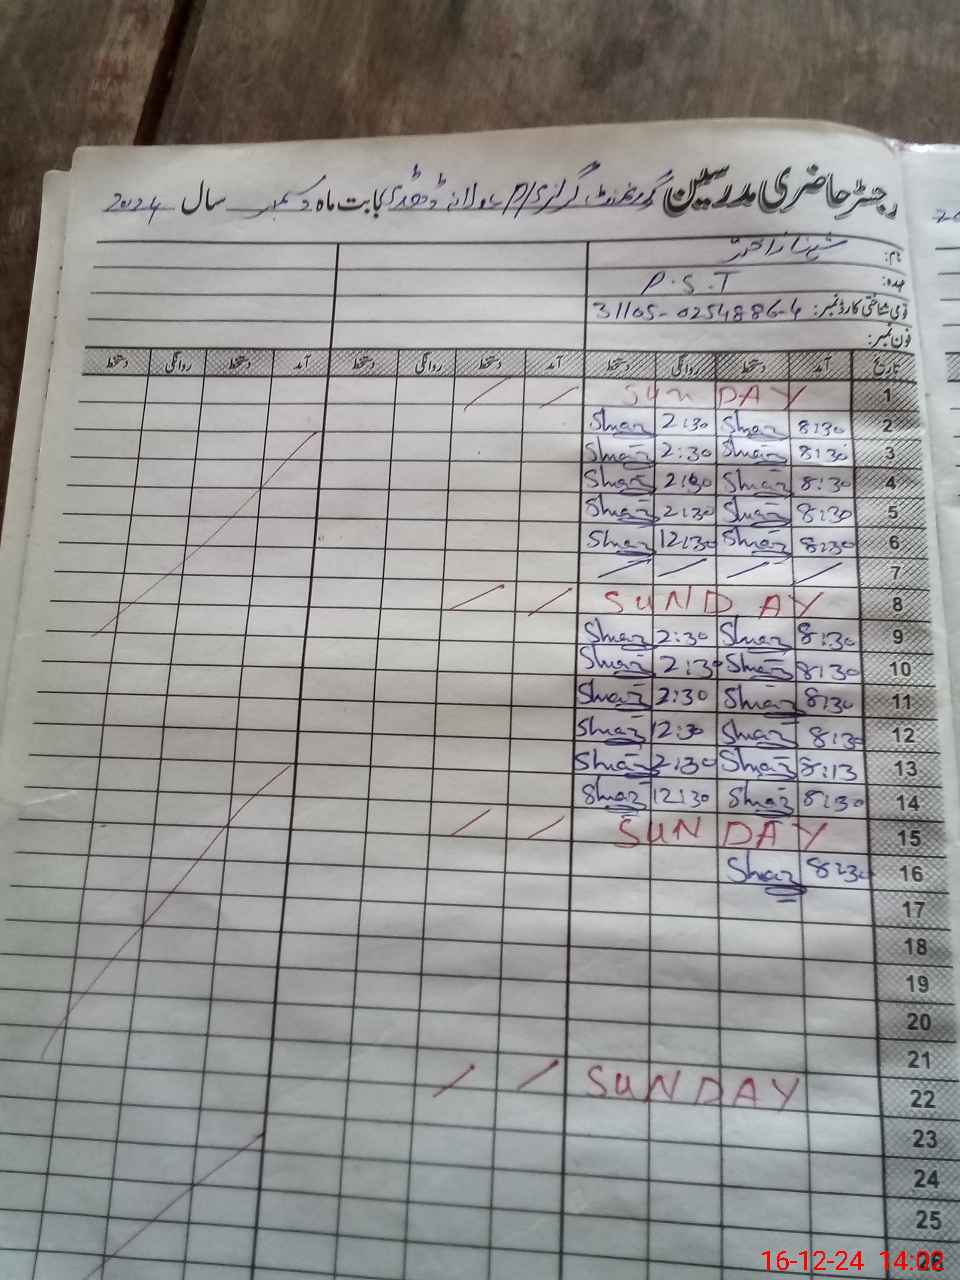 رجسٹر حاضری مدرسین گورنمنٹ گرلز P/ بابت ماہ دسمبر سال 2024
نام: شہناز اختر
عہدہ: P.S.T
قومی شناختی کارڈ نمبر: 31105-0254886-4
فون نمبر:
تاریخ آمد دستخط روانگی دستخط آمد دستخط روانگی دستخط آمد دستخط روانگی دستخط
1 SUNDAY
2 8:30 Shnaz 2:30 Shnaz
3 8:30 Shnaz 2:30 Shnaz
4 8:30 Shnaz 2:30 Shnaz
5 8:30 Shnaz 2:30 Shnaz
6 8:30 Shnaz 12:30 Shnaz
7
8 SUNDAY
9 8:30 Shnaz 2:30 Shnaz
10 8:30 Shnaz 2:30 Shnaz
11 8:30 Shnaz 2:30 Shnaz
12 8:30 Shnaz 12:30 Shnaz
13 8:13 Shnaz 2:30 Shnaz
14 8:30 Shnaz 12:30 Shnaz
15 SUNDAY
16 8:30 Shnaz
17
18
19
20
21
22 SUNDAY
23
24
25
26
16-12-24 14:02